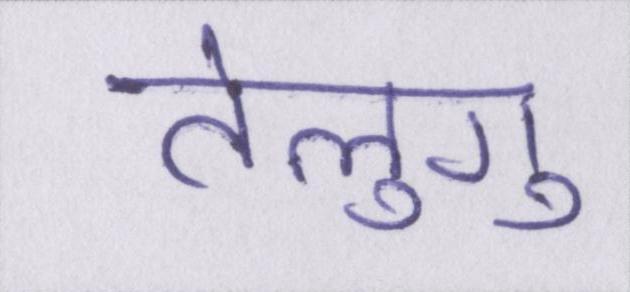 तेलुगु